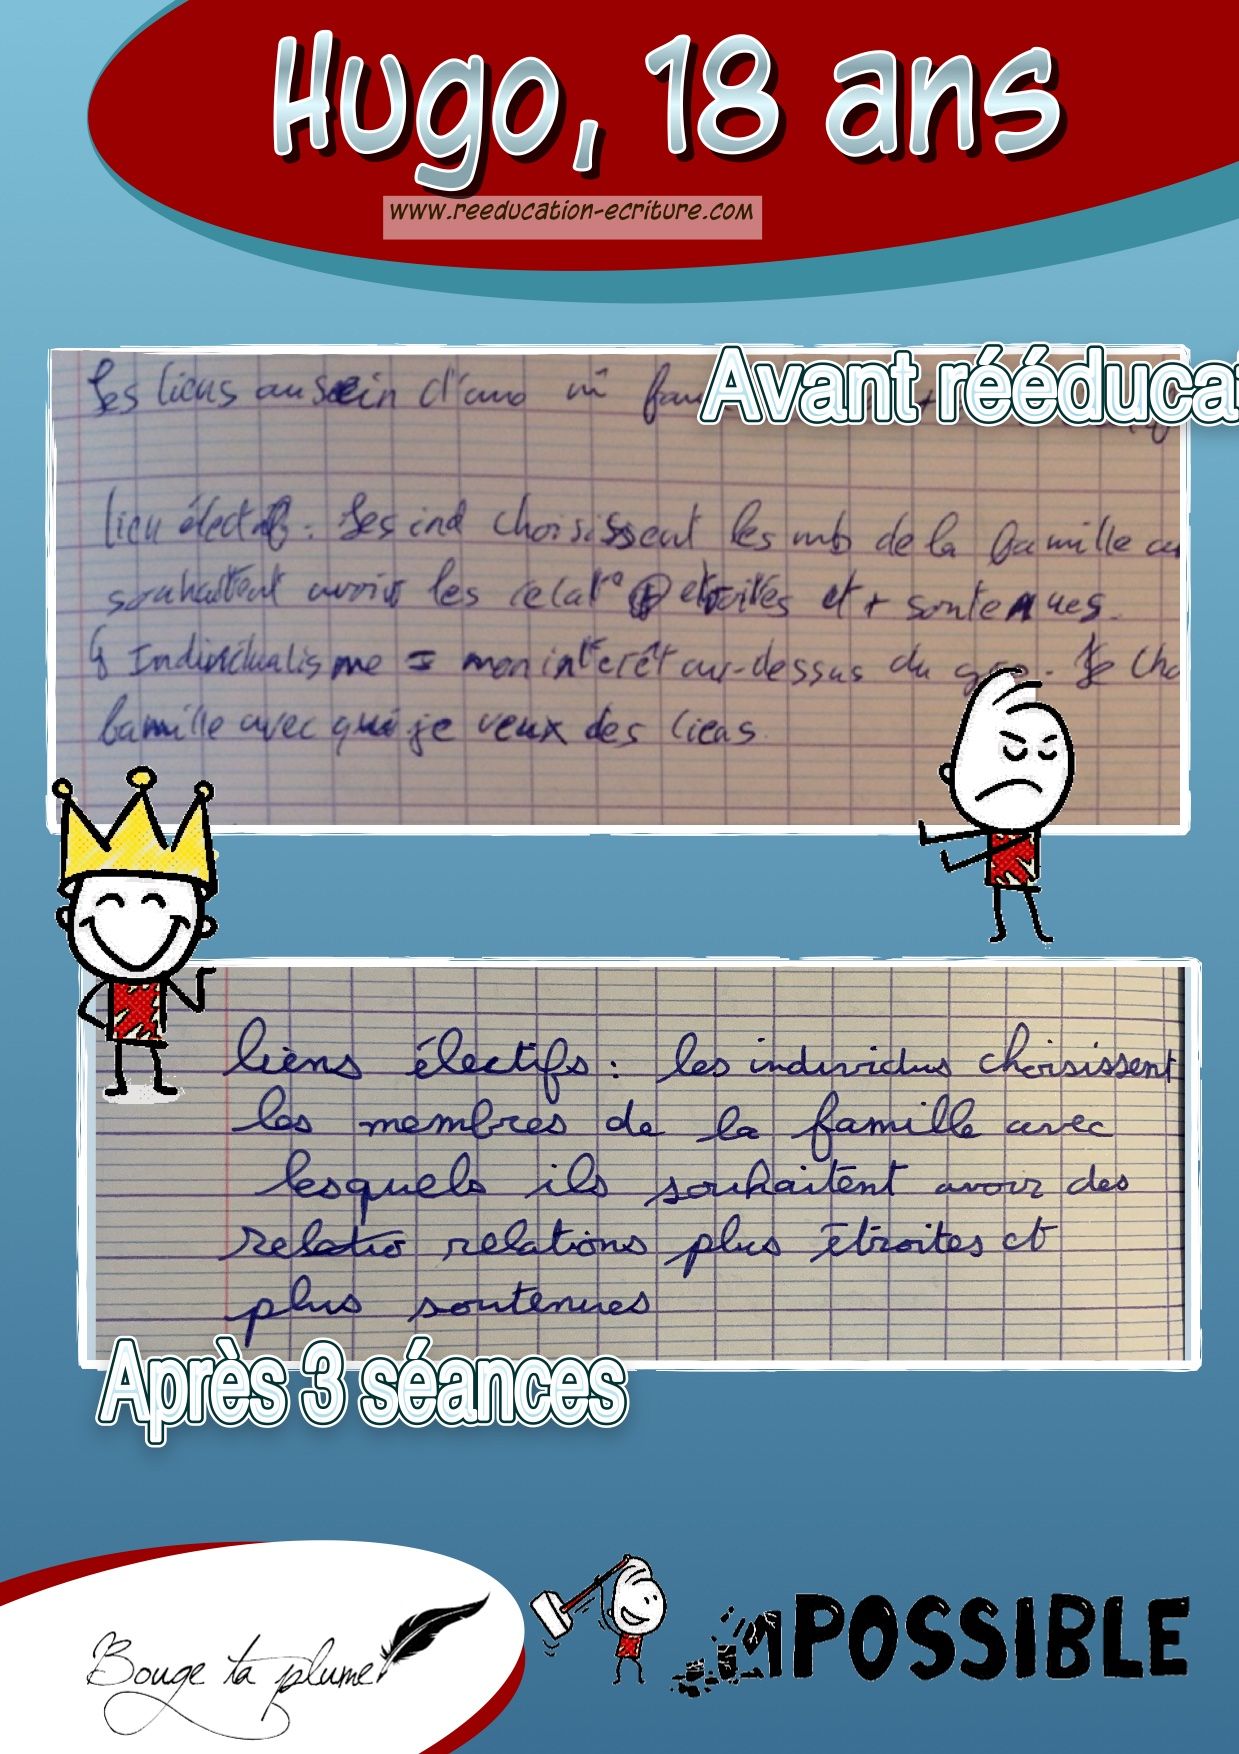 Hugo, 18 ans
www.reeducation-ecriture.com
Avant rééducat
Les liens au sein d'une m̂ fam
lien électif. Les ind choisissent les mb de la famille av
souhaitent avoir les relat° + étroites et + soutenues.
↳ Individualisme = mon intérêt au-dessus du gpe. Je cho
famille avec qui je veux des liens
liens électifs : les individus choisissent
les membres de la famille avec
lesquels ils souhaitent avoir des
relatio relations plus étroites et
plus soutenues
Après 3 séances
Bouge ta plume
POSSIBLE